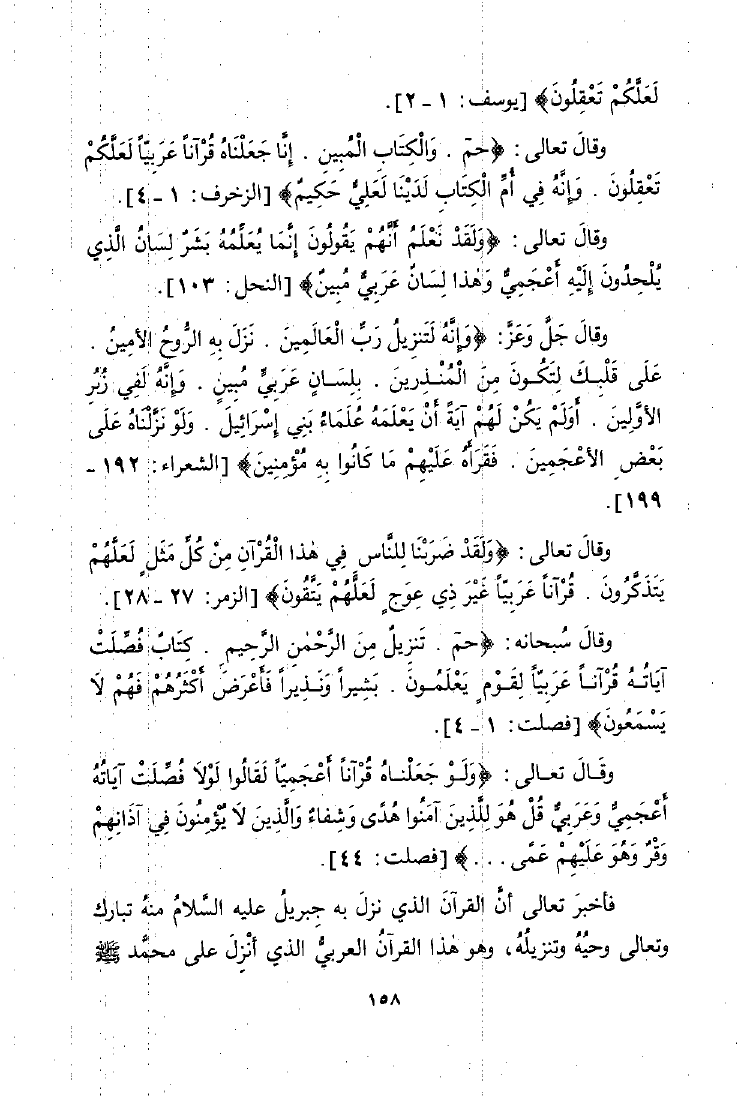 لَعَلَّكُمْ تَعْقِلُونَ﴾ [يوسف: ١ - ٢].
وقالَ تعالى: ﴿حمٓ . وَالْكِتَابِ الْمُبِينِ . إِنَّا جَعَلْنَاهُ قُرْآناً عَرَبِيّاً لَعَلَّكُمْ
تَعْقِلُونَ . وَإِنَّهُ فِي أُمِّ الْكِتَابِ لَدَيْنَا لَعَلِيٌّ حَكِيمٌ﴾ [الزخرف: ١ - ٤].
وقالَ تعالى: ﴿وَلَقَدْ نَعْلَمُ أَنَّهُمْ يَقُولُونَ إِنَّمَا يُعَلِّمُهُ بَشَرٌ لِسَانُ الَّذِي
يُلْحِدُونَ إِلَيْهِ أَعْجَمِيٌّ وَهٰذا لِسَانٌ عَرَبِيٌّ مُبِينٌ﴾ [النحل: ١٠٣].
وقالَ جَلَّ وَعَزَّ: ﴿وَإِنَّهُ لَتَنزِيلُ رَبِّ الْعَالَمِينَ . نَزَلَ بِهِ الرُّوحُ الأَمِينُ .
عَلَى قَلْبِكَ لِتَكُونَ مِنَ الْمُنْذِرينَ . بِلِسَانٍ عَرَبِيٍّ مُبِينٍ . وَإِنَّهُ لَفِي زُبُرِ
الأَوَّلِينَ . أَوَلَمْ يَكُنْ لَهُمْ آيَةً أَنْ يَعْلَمَهُ عُلَمَاءُ بَنِي إِسْرَائِيلَ . وَلَوْ نَزَّلْنَاهُ عَلَى
بَعْضِ الأَعْجَمِينَ . فَقَرَأَهُ عَلَيْهِمْ مَا كَانُوا بِهِ مُؤْمِنِينَ﴾ [الشعراء: ١٩٢ -
١٩٩].
وقالَ تعالى: ﴿وَلَقَدْ ضَرَبْنَا لِلنَّاسِ فِي هٰذا الْقُرْآنِ مِنْ كُلِّ مَثَلٍ لَعَلَّهُمْ
يَتَذَكَّرُونَ . قُرْآناً عَرَبِيّاً غَيْرَ ذِي عِوَجٍ لَعَلَّهُمْ يَتَّقُونَ﴾ [الزمر: ٢٧ - ٢٨].
وقالَ سُبحانه: ﴿حمٓ . تَنزِيلٌ مِنَ الرَّحْمٰنِ الرَّحِيمِ . كِتَابٌ فُصِّلَتْ
آيَاتُهُ قُرْآناً عَرَبِيّاً لِقَوْمٍ يَعْلَمُونَ . بَشِيراً وَنَذِيراً فَأَعْرَضَ أَكْثَرُهُمْ فَهُمْ لَا
يَسْمَعُونَ﴾ [فصلت: ١ - ٤].
وقَالَ تعالى: ﴿وَلَوْ جَعَلْناهُ قُرْآناً أَعْجَمِيّاً لَقَالُوا لَوْلَا فُصِّلَتْ آيَاتُهُ
أَعْجَمِيٌّ وَعَرَبِيٌّ قُلْ هُوَ لِلَّذِينَ آمَنُوا هُدًى وَشِفاءٌ وَالَّذِينَ لَا يُؤْمِنُونَ فِي آذَانِهِمْ
وَقْرٌ وَهُوَ عَلَيْهِمْ عَمًى . . .﴾ [فصلت: ٤٤].
فأخبرَ تعالى أنَّ القرآنَ الذي نزلَ به جِبريلُ عليه السَّلامُ منهُ تبارك
وتعالى وحيُهُ وتنزيلُهُ، وهو هٰذا القرآنُ العربيُّ الذي أُنْزِلَ على محمَّد ﷺ
١٥٨